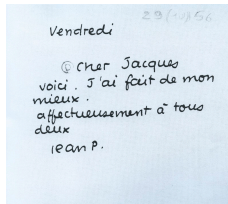 Vendredi
© Cher Jacques
voici. J'ai fait de mon
mieux.
affectueusement à tous
deux
Jean P.